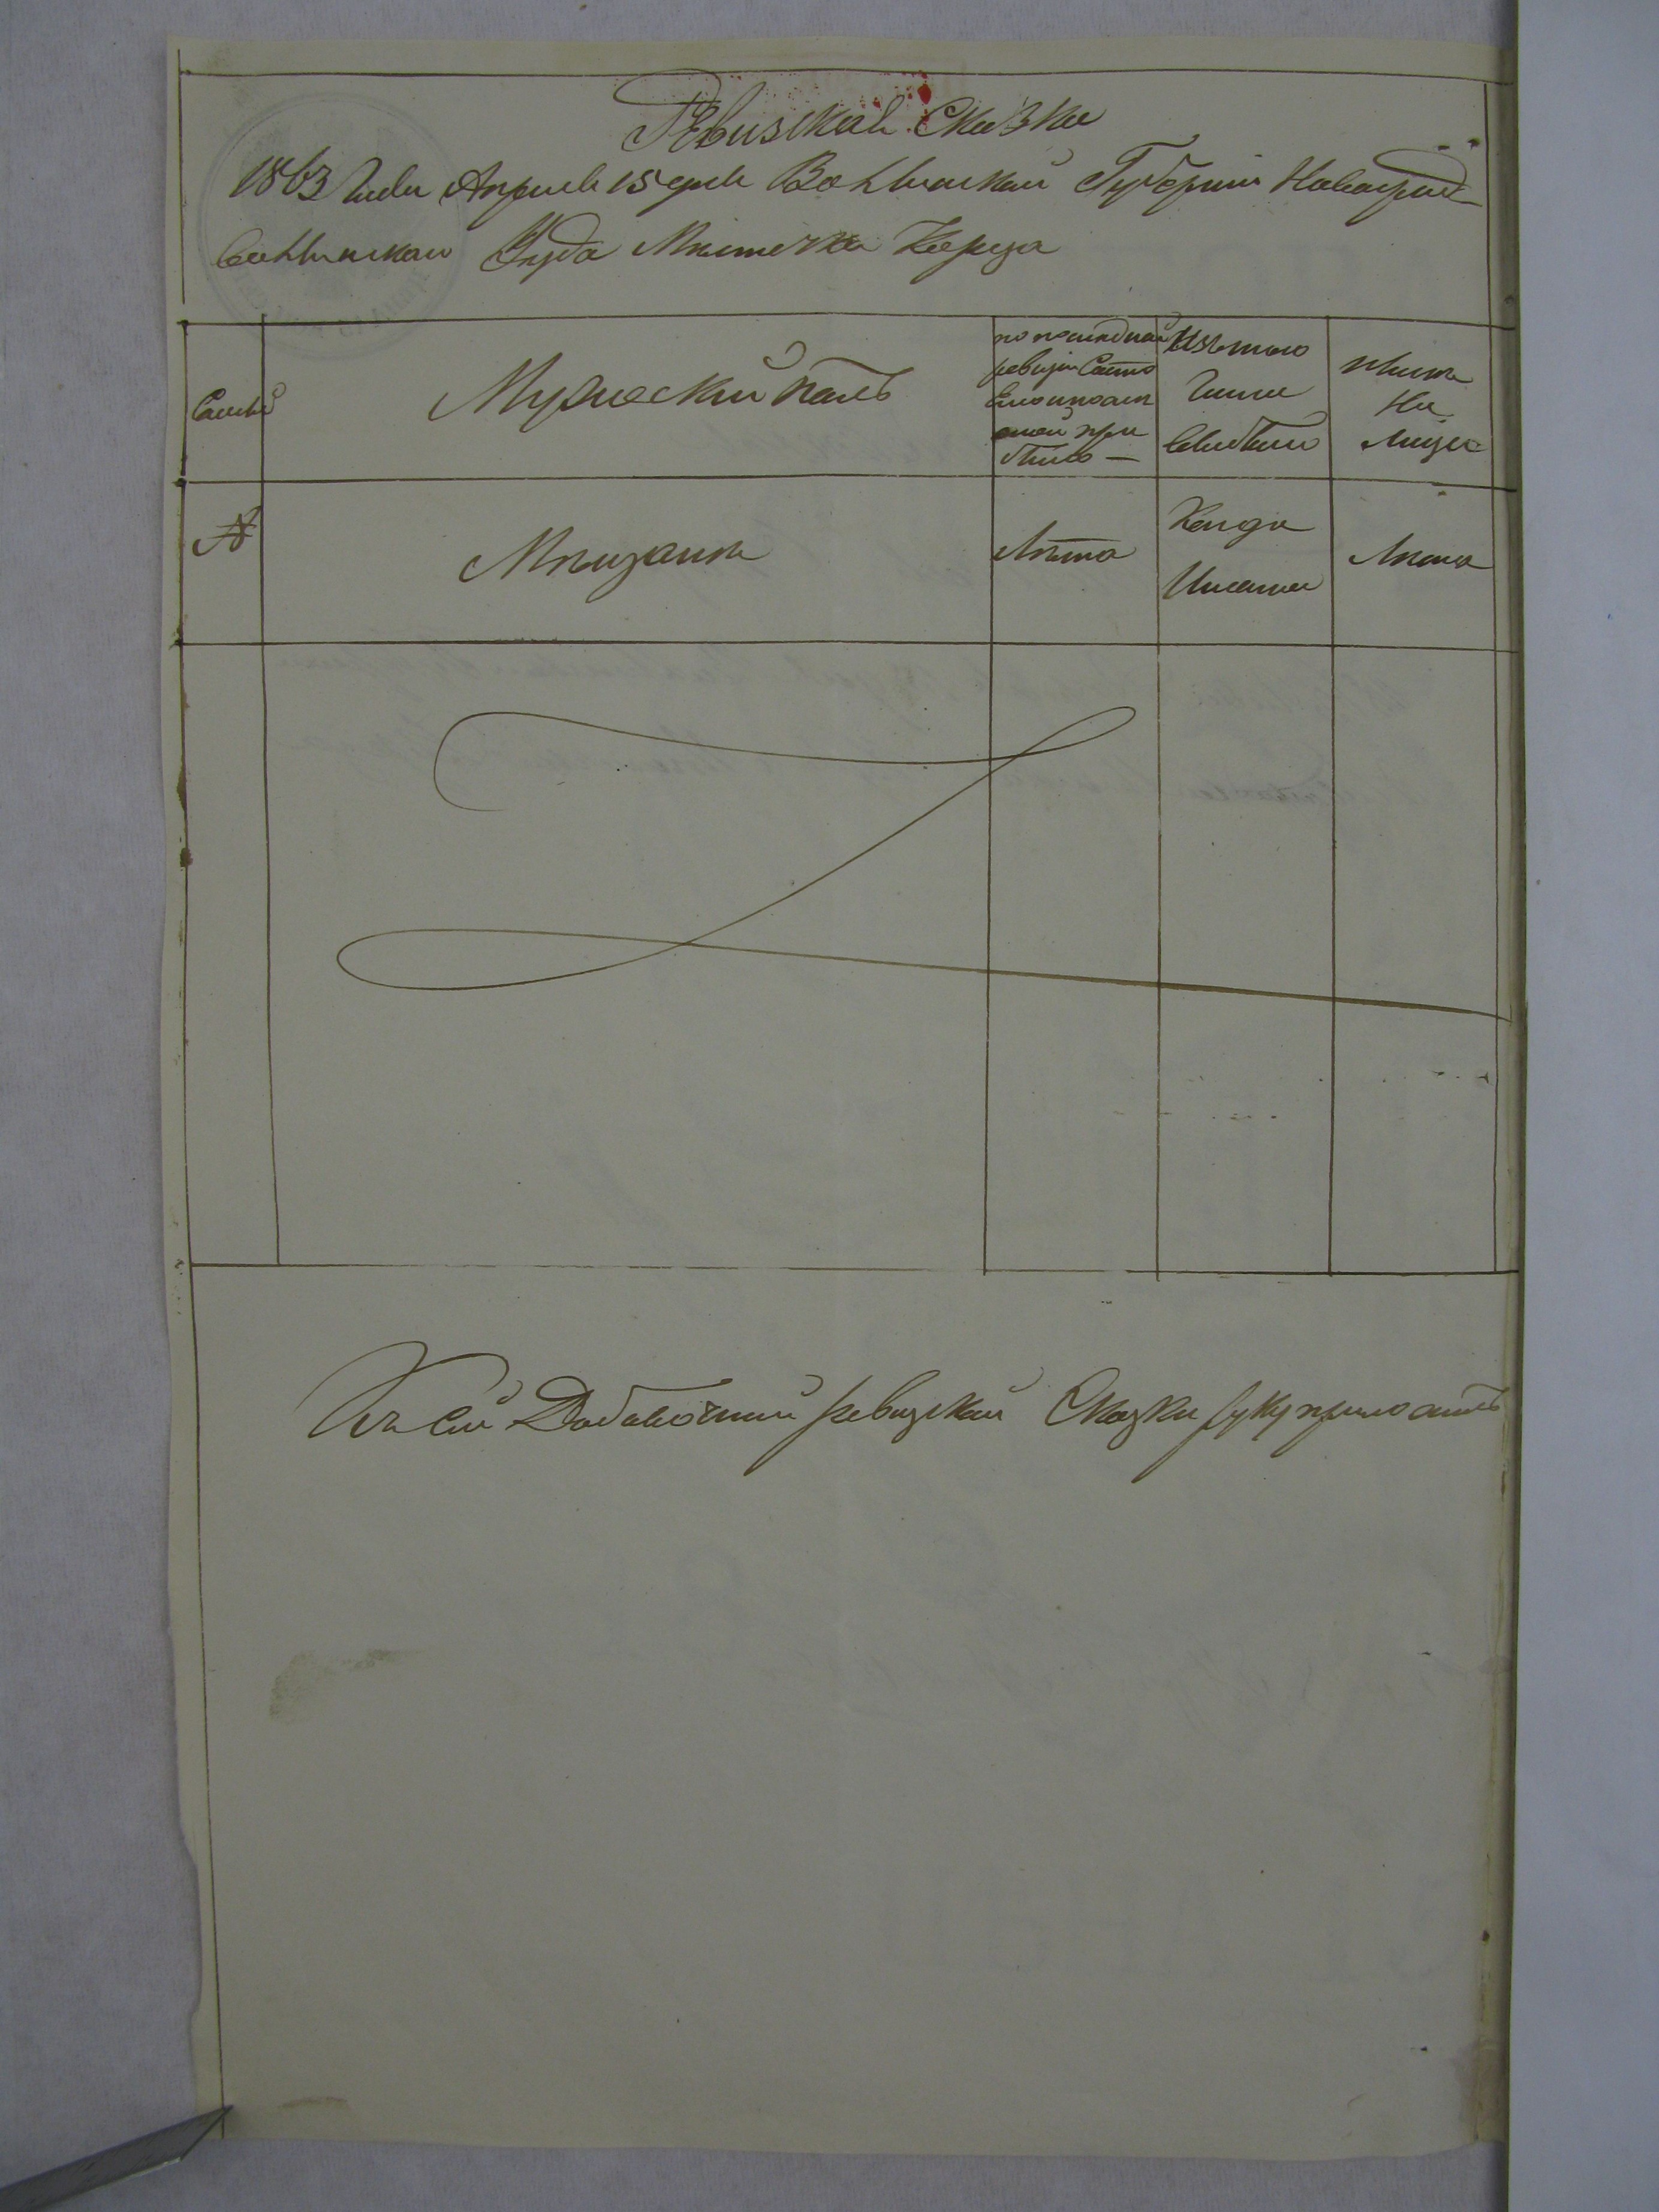 Ревизская Сказка
1863 года Апреля 15 дня Волынской Губернии Новоград
волынскаго Уезда Местечка Корца
Семьи
Мужеский полъ
по последней
ревизии Состо
при
было —
Изъ того
числа
выбыло
Ныне
На
Лицо
№
Мещане
Лета
Когда
Именно
Лета
Къ сей Добавочной ревизской Сказки руку приложилъ